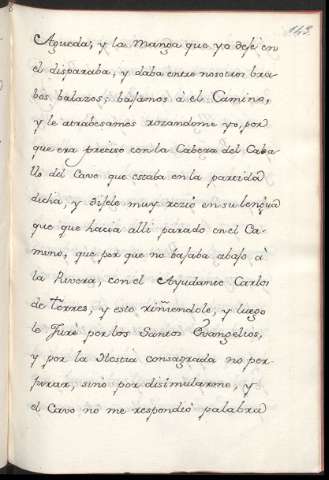 143
Agueda, y la Manga que yo dejè en
el disparaba, y daba entre nosotros bra
bos balazos; bajamos à el Camino,
y le atrabesamos rozandome yo, por
que era preciso con la Cabeza del Caba
llo del Cavo que estaba en la partida
dicha, y dijele muy rezio en su lengua
que que hacia alli parado en el Ca-
mino, que por que no bajaba abajo à
la Rivera, con el Ayudante Carlos
de Torres, y esto riñiendole, y luego
lo Jurè por los Santos Evangelios,
y por la Hostia consagrada no por
jurar, sino por disimularme, y
el Cavo no me respondió palabra